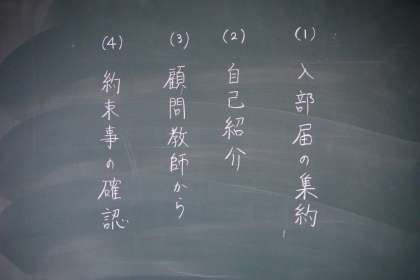 (1) 入部届の集約
(2) 自己紹介
(3) 顧問教師から
(4) 約束事の確認